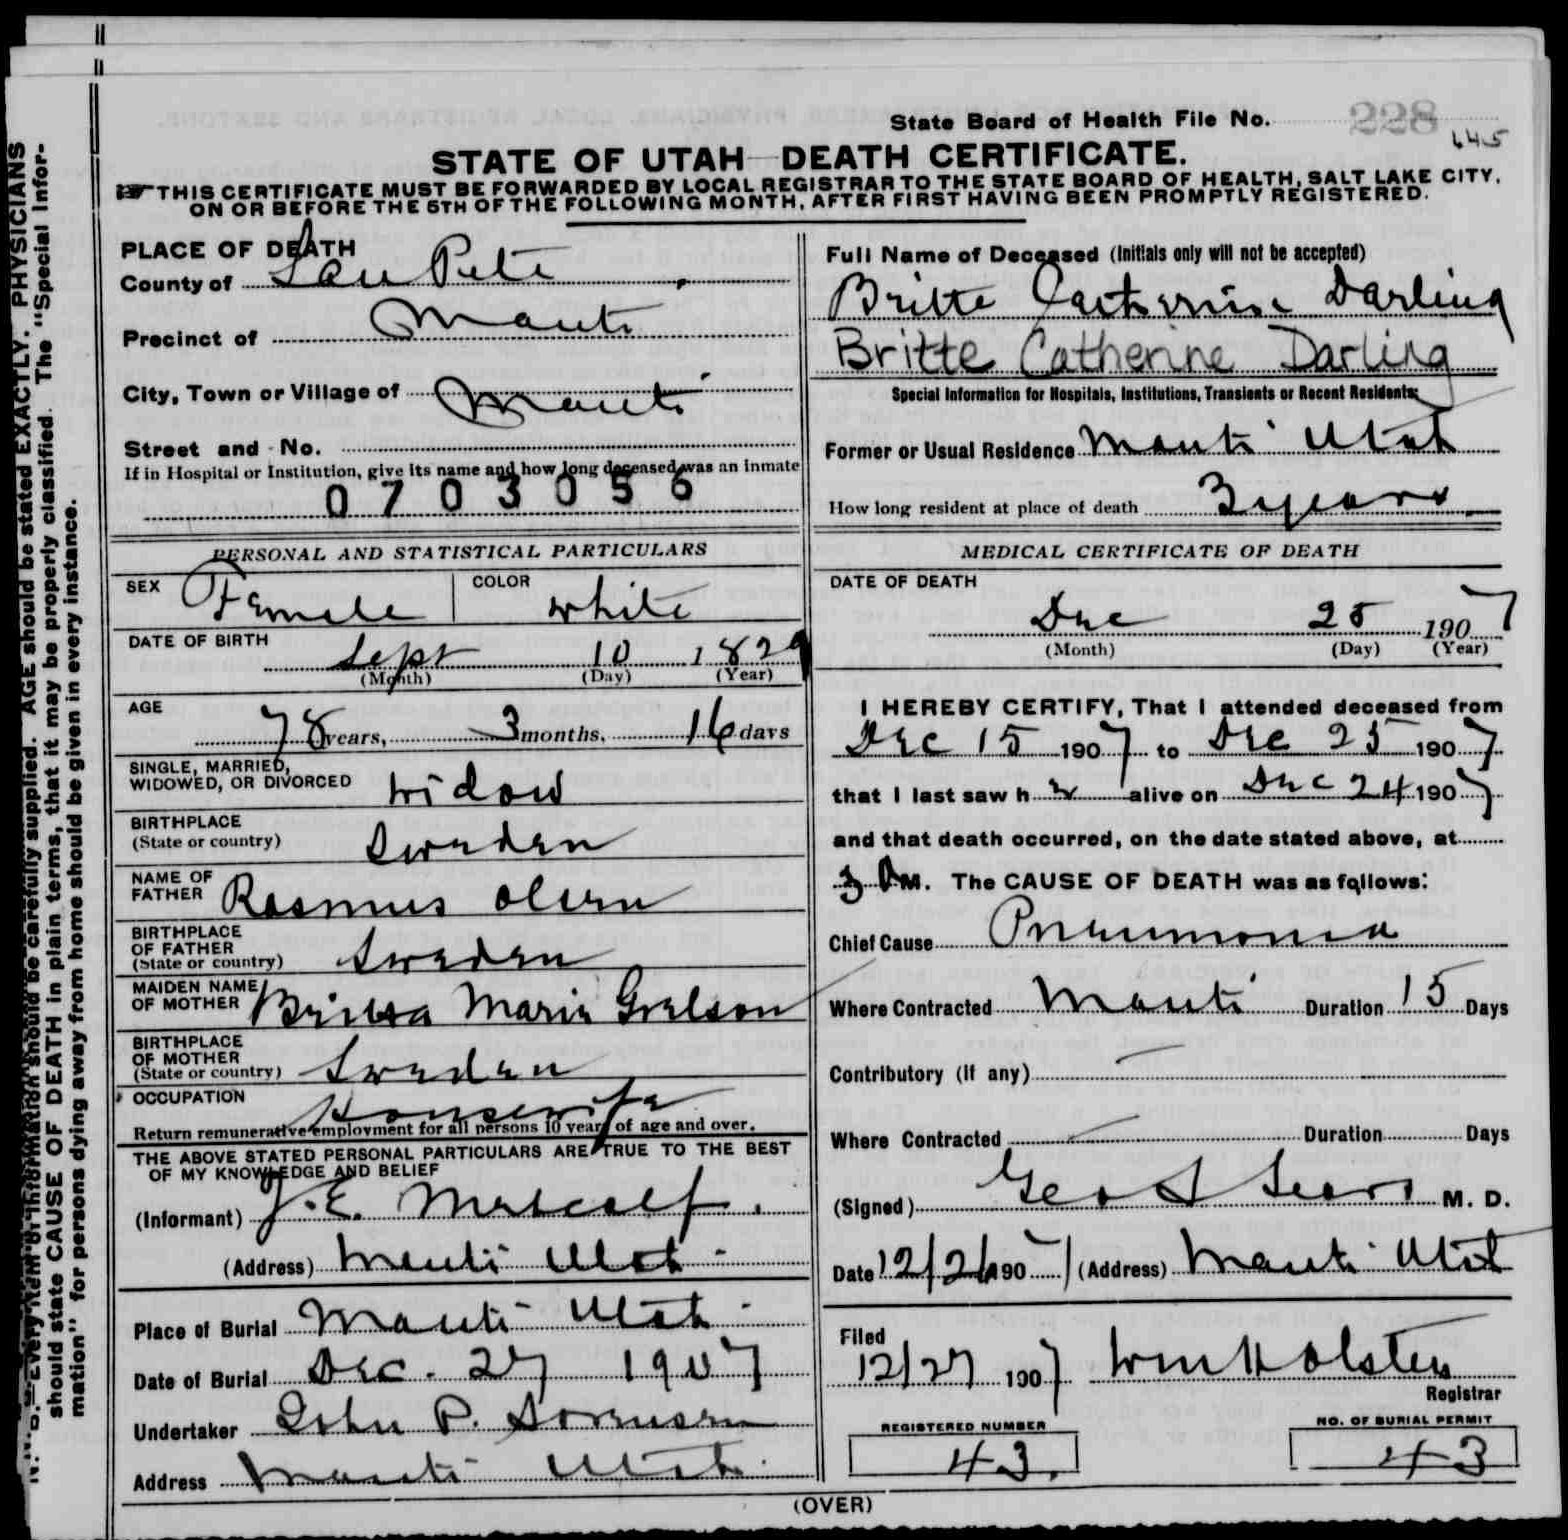 State Board of Health File No. 228
645
STATE OF UTAH—DEATH CERTIFICATE.
THIS CERTIFICATE MUST BE FORWARDED BY LOCAL REGISTRAR TO THE STATE BOARD OF HEALTH, SALT LAKE CITY,
ON OR BEFORE THE 5TH OF THE FOLLOWING MONTH, AFTER FIRST HAVING BEEN PROMPTLY REGISTERED.
PLACE OF DEATH
County of San Pete
Precinct of Manti
City, Town or Village of Manti
Street and No.
If in Hospital or Institution, give its name and how long deceased was an inmate
0703056
Full Name of Deceased (Initials only will not be accepted)
Britte Catherine Darling
Britte Catherine Darling
Special Information for Hospitals, Institutions, Transients or Recent Residents
Former or Usual Residence Manti Utah
How long resident at place of death 3 years
PERSONAL AND STATISTICAL PARTICULARS
SEX Female COLOR white
DATE OF BIRTH
Sept 10 1829
(Month) (Day) (Year)
AGE
78 years, 3 months, 16 days
SINGLE, MARRIED,
WIDOWED, OR DIVORCED widow
BIRTHPLACE
(State or country) Sweden
NAME OF
FATHER Rasmus Olsen
BIRTHPLACE
OF FATHER
(State or country) Sweden
MAIDEN NAME
OF MOTHER Maria
BIRTHPLACE
OF MOTHER
(State or country) Sweden
OCCUPATION Housewife
Return remunerative employment for all persons 10 years of age and over.
THE ABOVE STATED PERSONAL PARTICULARS ARE TRUE TO THE BEST
OF MY KNOWLEDGE AND BELIEF
(Informant) J. E. Metcalf.
(Address) Manti Utah
Place of Burial Manti Utah
Date of Burial Dec. 27 1907
Undertaker John P. Sorensen
Address Manti Utah
MEDICAL CERTIFICATE OF DEATH
DATE OF DEATH
Dec 25 1907
(Month) (Day) (Year)
I HEREBY CERTIFY, That I attended deceased from
Dec 15 1907 to Dec 25 1907
that I last saw h er alive on Dec 24 1907
and that death occurred, on the date stated above, at
3 M. The CAUSE OF DEATH was as follows:
Chief Cause Pneumonia
Where Contracted Manti Duration 15 Days
Contributory (if any) —
Where Contracted — Duration Days
(Signed) Geo L Sears M. D.
Date 12/26 1907 (Address) Manti Utah
Filed
12/27 1907 Wm H Olsten
Registrar
REGISTERED NUMBER
43.
NO. OF BURIAL PERMIT
43
(OVER)
N. B.—Every item of information should be carefully supplied. AGE should be stated EXACTLY. PHYSICIANS
should state CAUSE OF DEATH in plain terms, that it may be properly classified. The "Special Infor-
mation" for persons dying away from home should be given in every instance.